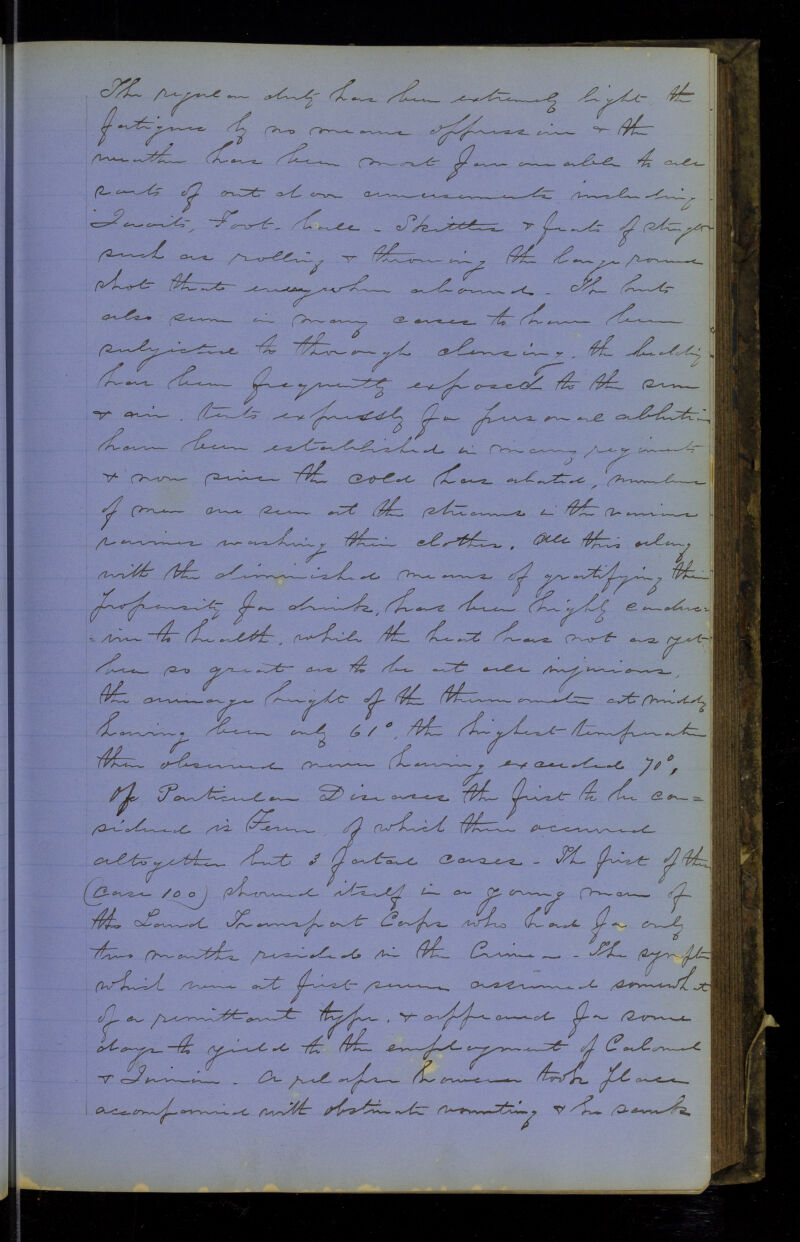 The regular duty has been extremely light, the
fatigues by no means oppressive & the
weather has been most favourable to all
sorts of out door amusements including
Quoits, Foot-ball - Skittles & feats of strength
such as rolling & throwing the large round
shot that everywhere abounds - The huts
also seem in many cases to have been
subjected to thorough clensing, the bedding
has been frequently exposed to the sun
& air. tents expressly for personal ablution
have been established in many regiments
& now since the cold has abated, numbers
of men are seen at the streams in the various
ravines washing their clothes. All this along
with the diminished means of gratifying their
propensity for drink, has been highly conduc=
=ive to health, while the heat has not as yet
been so great as to be at all injurious,
the average height of the thermometer at midday
having been only 61°, the highest temperature
then observed never having exceeded 70°.
Of Particular Diseases the first to be con=
sidered is Fever, of which there occurred
altogether but 3 fatal cases - The first of these
(Case 100) showed itself in a young man of
the Land Transport Corps who had for only
two months resided in the Crimea - The symptoms
which were at first severe assumed somewhat
of a remittant type, & appeared for some
days to yield to the employment of Calomel
& Quinine - A relapse however took place
accompanied with obstinate vomiting & he sank